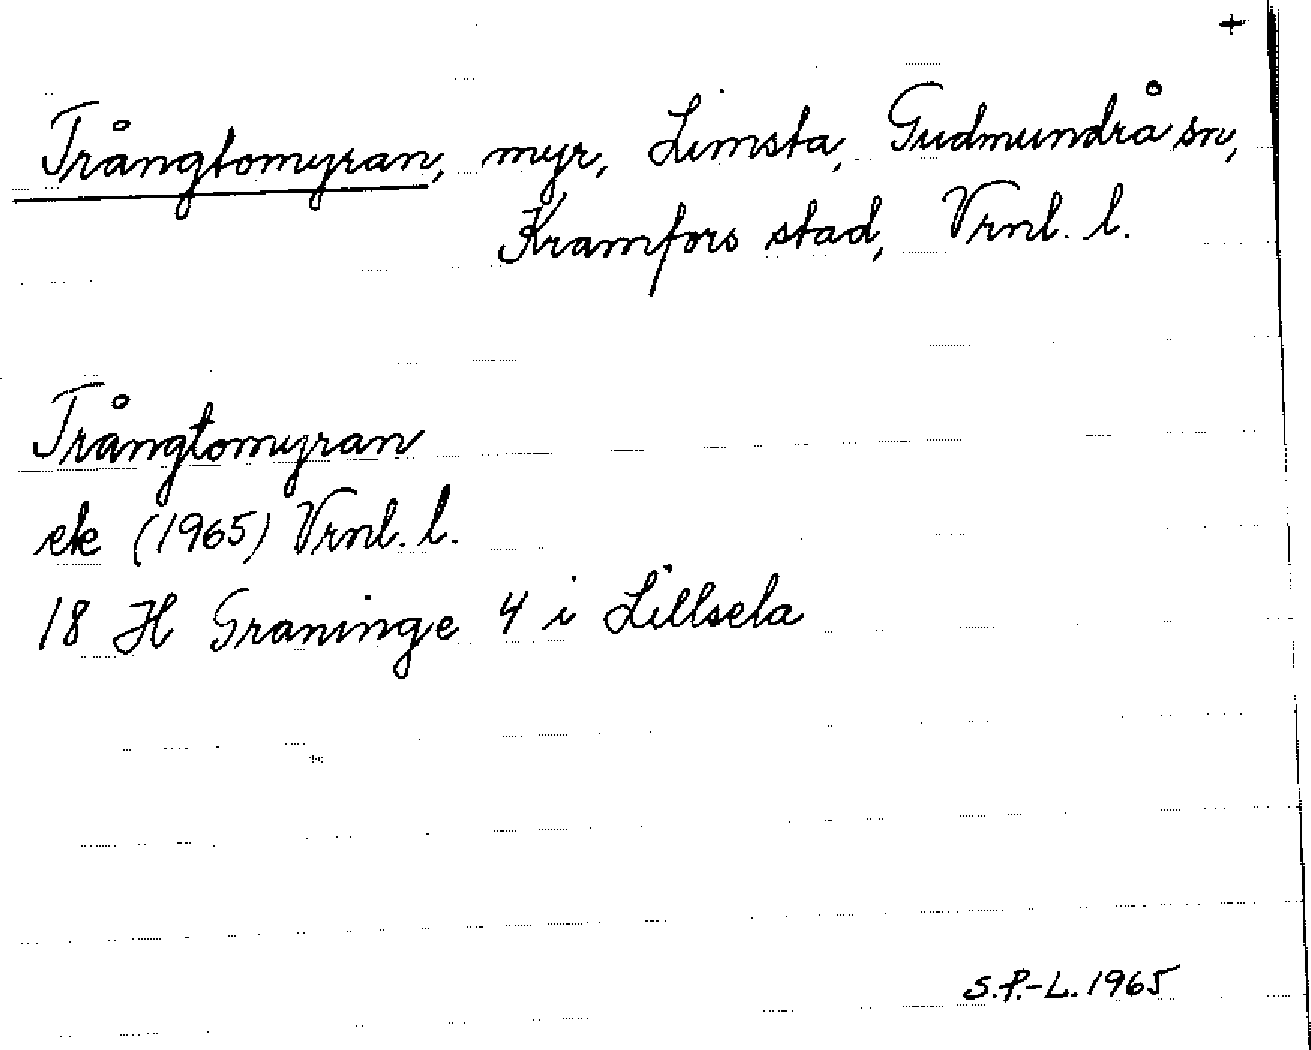 +
Trångtomyran, myr, Limsta, Gudmundrå sn,
Kramfors stad, Vrnl. l.
Trångtomyran
ek (1965) Vrnl. l.
18 H Graninge 4 i Lillsela
S.P.-L. 1965